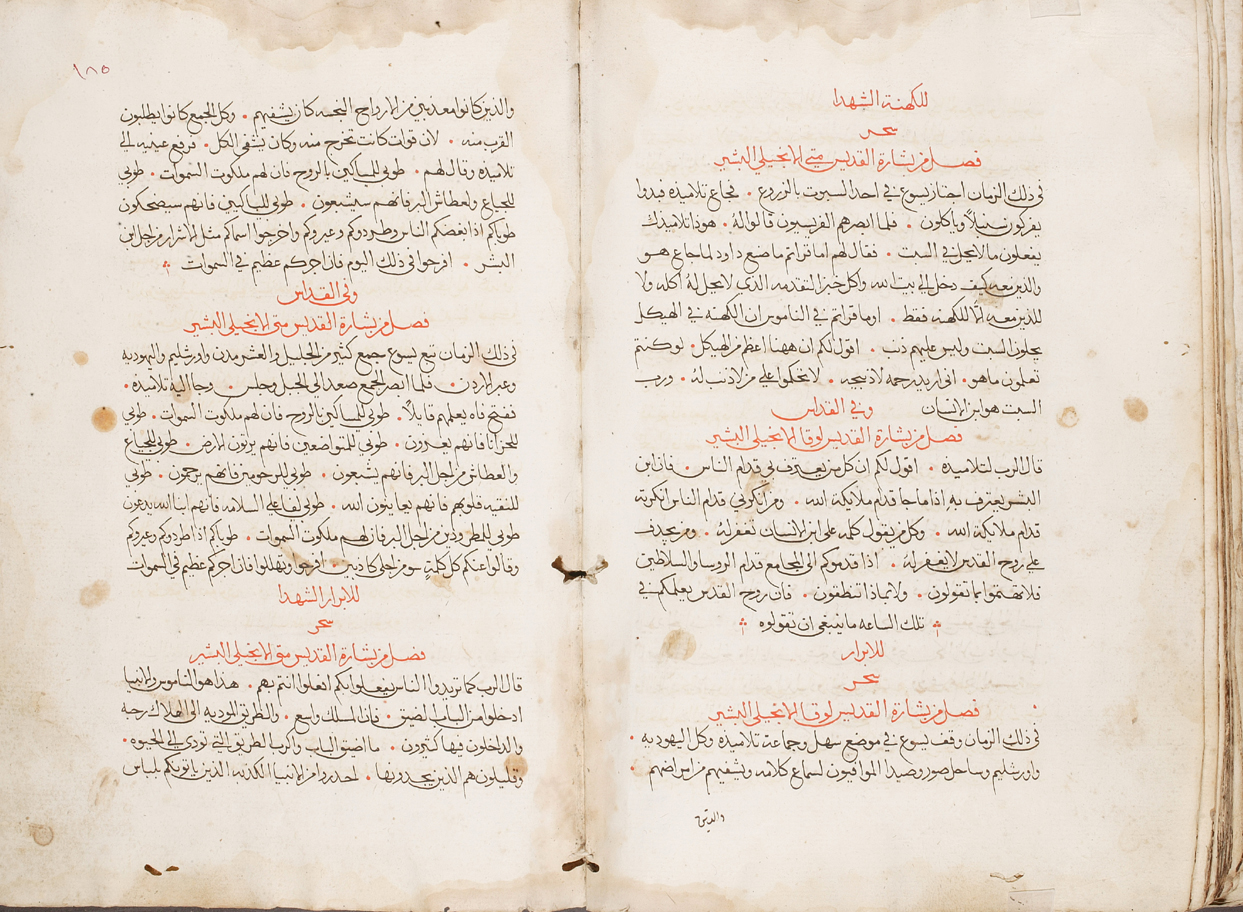 للكهنة الشهدا
سحر
فصل من بشارة القديس متي الانجيلي البشير
في ذلك الزمان اجتاز يسوع في احد السبوت بالزروع . فجاع تلاميذه فبدوا
يفركون سنبلاً وياكلون . فلما ابصرهم الفريسيون قالوا له . هوذا تلاميذك
يفعلون ما لا يحل في السبت . فقال لهم اما قراتم ما صنع داود لما جاع هو
والذين معه كيف دخل الى بيت الله واكل خبز التقدمه الذي لا يحل له اكله ولا
للذين معه الّا للكهنه فقط . اوما قراتم في الناموس ان الكهنه في الهيكل
يحلون السبت وليس عليهم ذنب . اقول لكم ان ههنا اعظم من الهيكل . لو كنتم
تعلمون ما هو . اني اريد رحمه لا ذبيحه . لا تحكموا علي من لا ذنب له . ورب
السبت هو ابن الانسان وفي القداس
فصل من بشارة القديس لوقا الانجيلي البشير
قال الرب لتلاميذه . اقول لكم ان كل من يعترف بي قدام الناس . فان ابن
البشر يعترف به اذا ما جا قدام ملايكة الله . ومن انكرني قدام الناس انكرته
قدام ملايكة الله . وكل من يقول كلمه على ابن الانسان تغفر له . ومن يجدف
علي روح القدس لا يغفر له . اذا قدموكم الى المجامع قدام الروسا والسلاطين
فلا تهتموا بما تقولون . ولا بماذا تنطقون . فان روح القدس يعلمكم في
تلك الساعه ما ينبغي ان تقولوه
للابرار
سحر
فصل من بشارة القديس لوقا الانجيلي البشير
في ذلك الزمان وقف يسوع في موضع سهل وجماعة تلاميذه وكل اليهوديه .
واورشليم وساحل صور وصيدا الموافيون لسماع كلامه ويشفيهم من امراضهم .
والذين
١٨٥
والذين كانوا معذبين من الارواح النجسه كان يشفيهم . وكل الجمع كانوا يطلبون
القرب منه . لان قوات كانت تخرج منه وكان يشفي الكل . فرفع عينيه الى
تلاميذه وقال لهم . طوبي للمساكين بالروح فان لهم ملكوت السموات . طوبي
للجياع والعطاش البر فانهم سيشبعون . طوبي للباكيين فانهم سيضحكون
طوباكم اذا ابغضكم الناس وطردوكم وعيروكم واخرجوا اسماكم مثل الاشرار من اجل ابن
البشر . افرحوا في ذلك اليوم فان اجركم عظيم في السموات
وفي القداس
فصل من بشارة القديس متي الانجيلي البشير
في ذلك الزمان تبع يسوع جمع كثير من الجليل والعشر مدن واورشليم واليهوديه
وعبر الاردن . فلما ابصر الجمع صعد الى الجبل وجلس . وجا اليه تلاميذه .
ففتح فاه يعلمهم قايلاً . طوبي للمساكين بالروح فان لهم ملكوت السموات . طوبي
للحزانا فانهم يعزون . طوبي للمتواضعين فانهم يرثون الارض . طوبي للجياع
والعطاش من اجل البر فانهم يشبعون . طوبي للرحومين فانهم يرحمون . طوبي
للنقيه قلوبهم فانهم يعاينون الله . طوبي لفاعلي السلامه فانهم ابنا الله يدعون
طوبي للمطرودين من اجل البر فان لهم ملكوت السموات . طوباكم اذا طردوكم وعيروكم
وقالوا عنكم كل كلمةٍ سو من اجلي كاذبين . افرحوا وتهللوا فان اجركم عظيم في السموات
للابرار الشهدا
سحر
فصل من بشارة القديس متي الانجيلي البشير
قال الرب كما تريدوا الناس يفعلوا بكم افعلوا انتم بهم . هذا هو الناموس والانبيا
ادخلوا من الباب الضيق . فان المسلك واسع . والطريق الموديه الى الهلاك رحبه
والداخلون فيها كثيرون . ما اضيق الباب واكرب الطريق التي تودي الى الحيوه .
وقليلون هم الذين يجدونها . احذروا من الانبيا الكذبه الذين ياتونكم بلباس